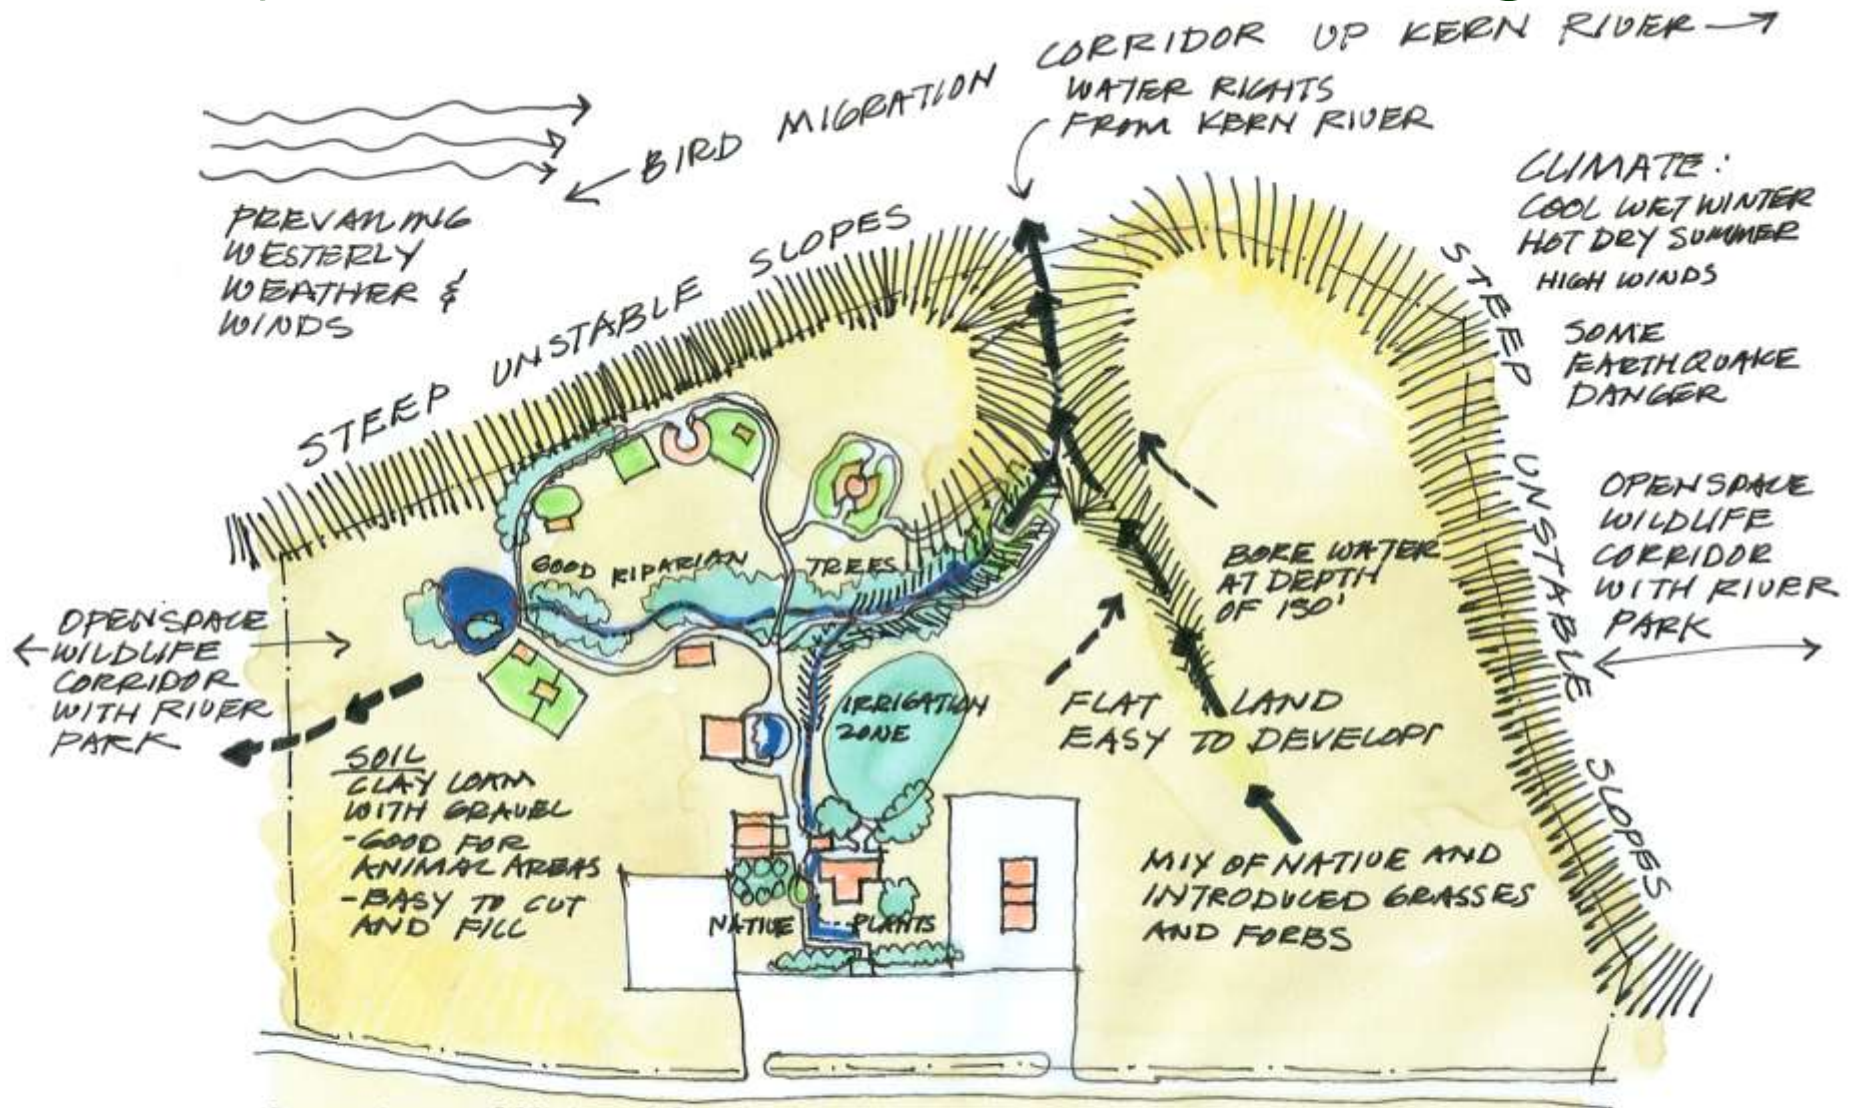 BIRD MIGRATION CORRIDOR UP KERN RIVER
WATER RIGHTS
FROM KERN RIVER
PREVAILING
WESTERLY
WEATHER &
WINDS
CLIMATE:
COOL WET WINTER
HOT DRY SUMMER
HIGH WINDS
SOME
EARTHQUAKE
DANGER
STEEP UNSTABLE SLOPES
STEEP UNSTABLE SLOPES
OPENSPACE
WILDLIFE
CORRIDOR
WITH RIVER
PARK
GOOD RIPARIAN TREES
BORE WATER
AT DEPTH
OF 150'
OPENSPACE
WILDLIFE
CORRIDOR
WITH RIVER
PARK
IRRIGATION
ZONE
FLAT LAND
EASY TO DEVELOP
SOIL
CLAY LOAM
WITH GRAVEL
-GOOD FOR
ANIMAL AREAS
-EASY TO CUT
AND FILL
NATIVE PLANTS
MIX OF NATIVE AND
INTRODUCED GRASSES
AND FORBS